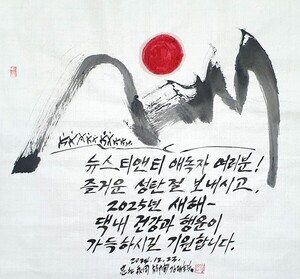 뉴스티앤티 애독자 여러분!
즐거운 성탄절 보내시고,
2025년 새해~
댁내 건강과 행운이
가득하시길 기원합니다.
2024.12.23.